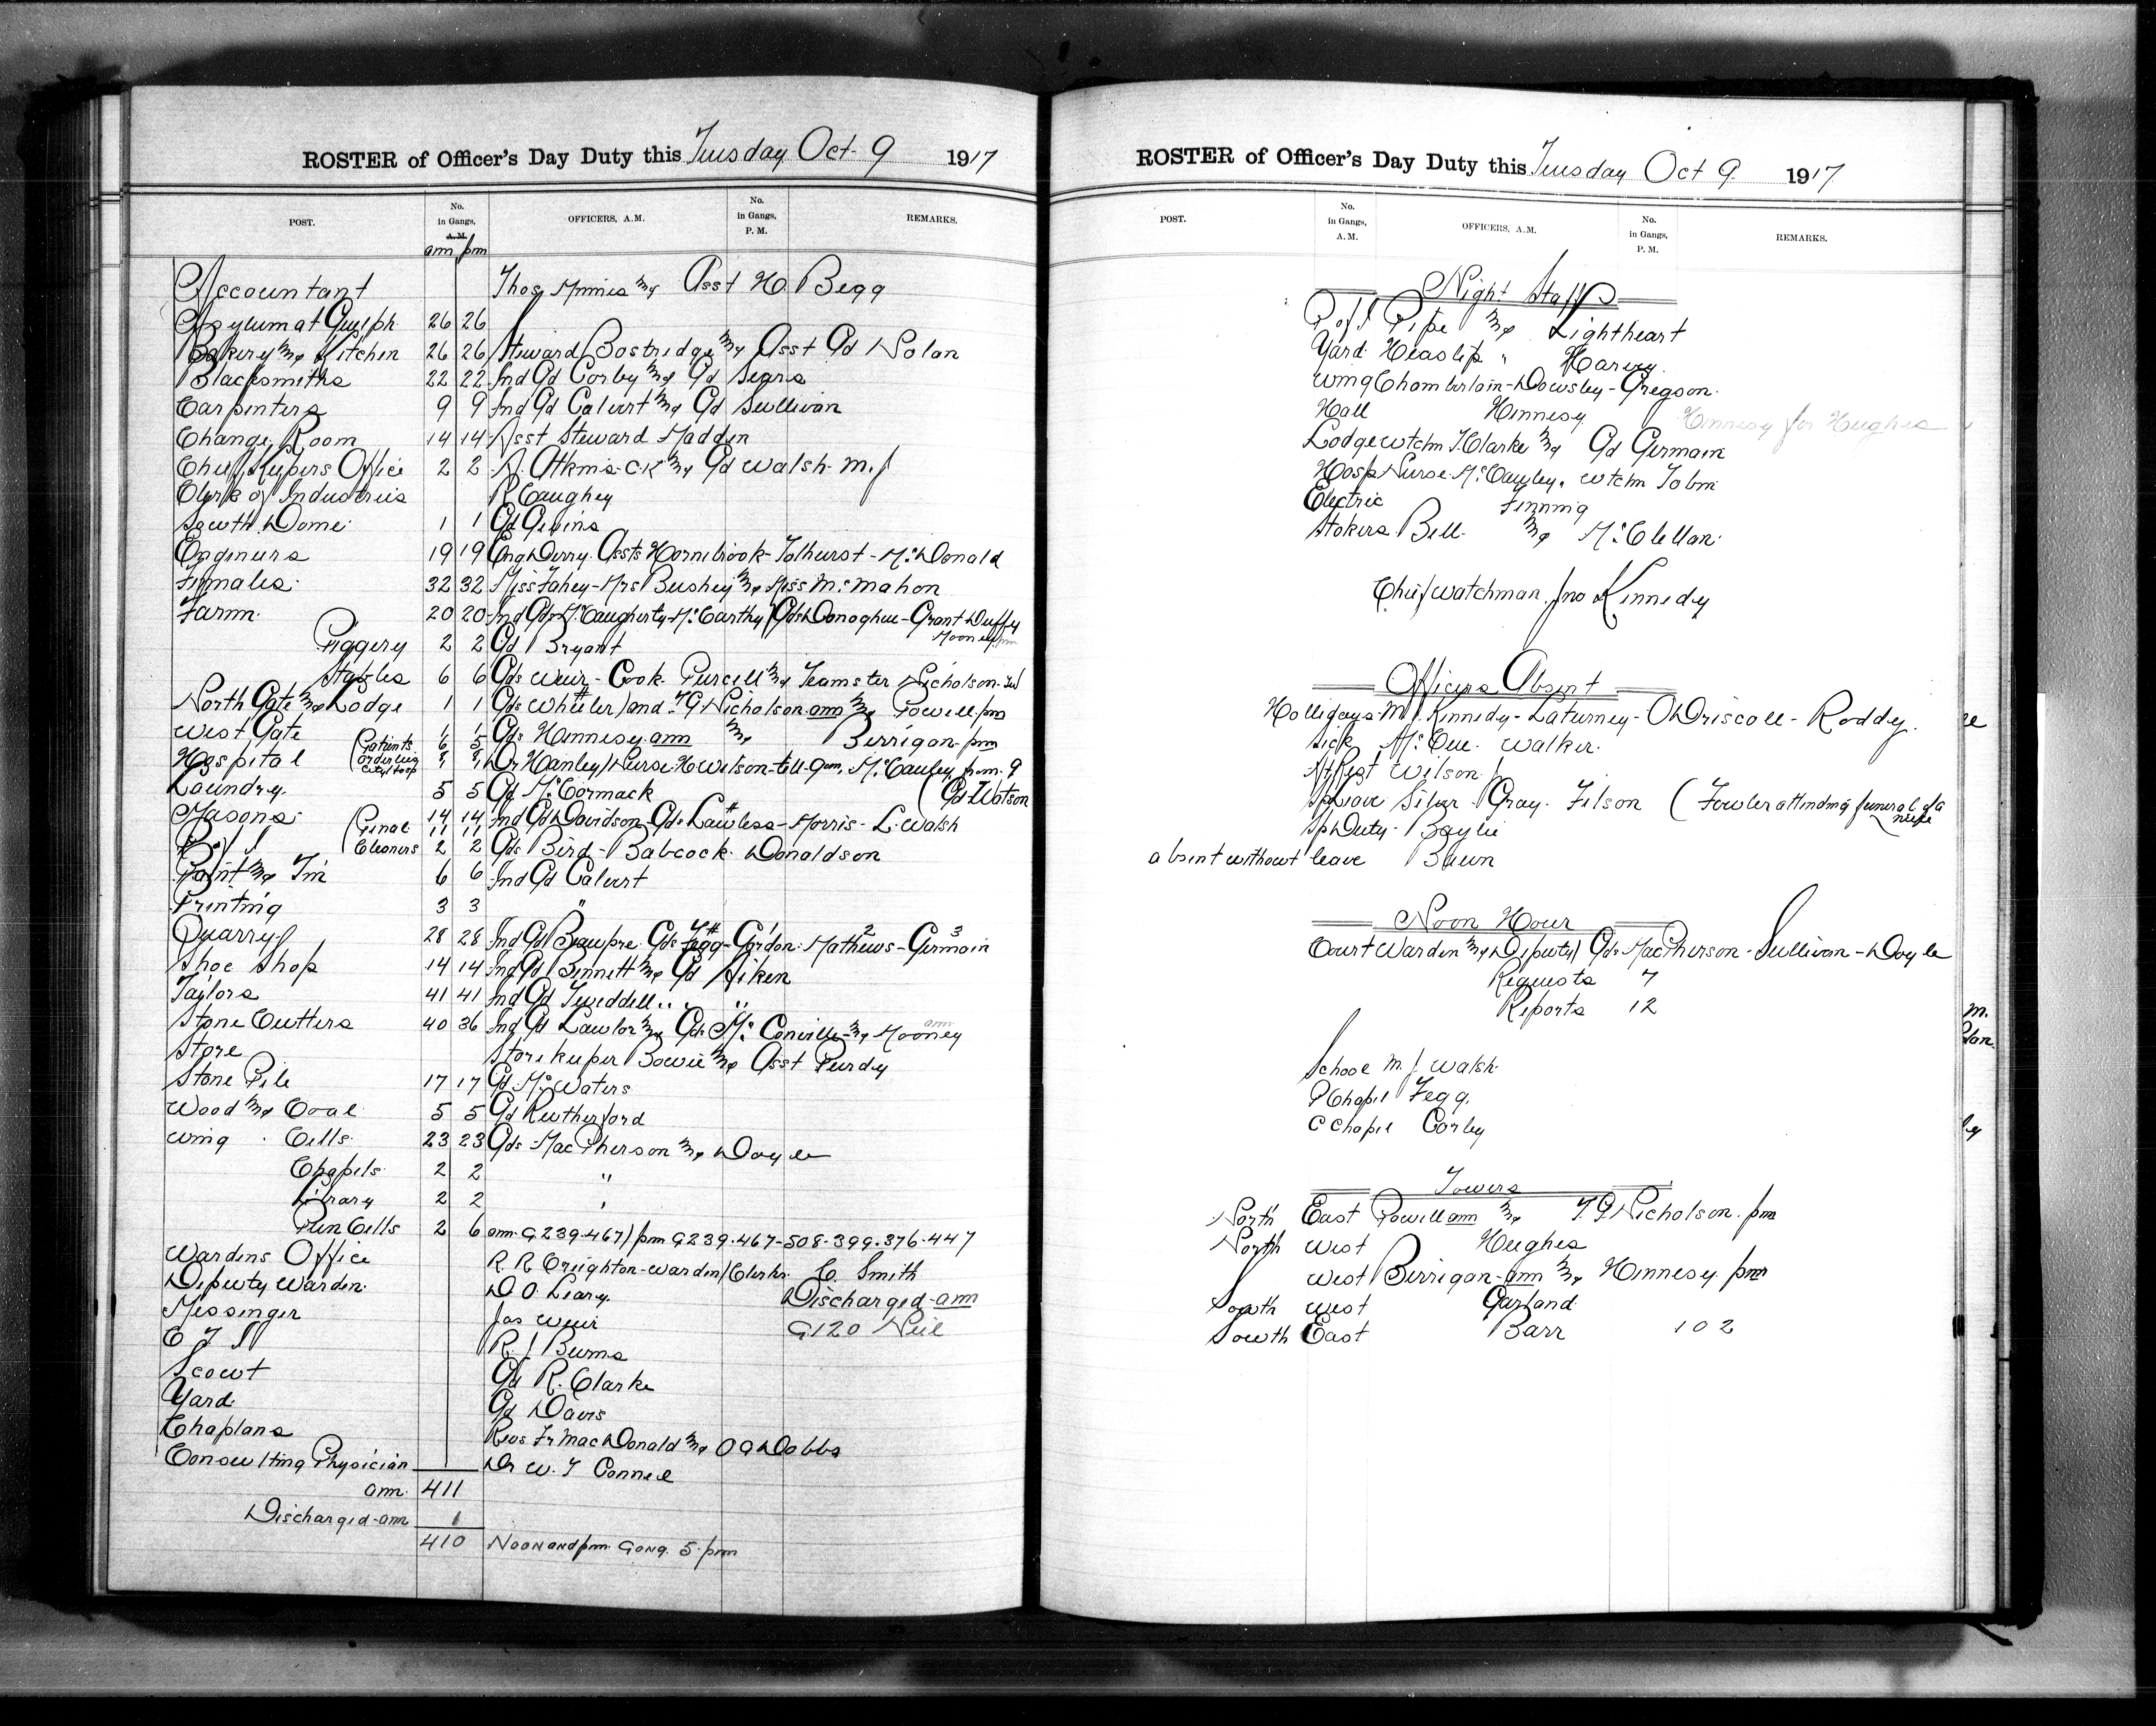 ROSTER of Officer's Day Duty this Tuesday Oct 9 1917
POST. No. in Gangs, A.M. OFFICERS, A.M. No. in Gangs, P.M. REMARKS.
am pm
Accountant Thos Minnis & Asst H. Begg
Asylum at Guelph 26 26
Bakery & Kitchen 26 26 Steward Bostridge & Asst Gd Nolan
Blacksmiths 22 22 Ind Gd Corby & Gd Sears
Carpenters 9 9 Ind Gd Calvert & Gd Sullivan
Change Room 14 14 Asst Steward Madden
Chief Keepers Office 2 2 R. Atkins C.K & Gd Walsh M.J
Clerk of Industries R Caughey
South Dome 1 1 Gd Givins
Engineers 19 19 Eng Derry. Assts Hornibrook - Tolhurst - McDonald
Females 32 32 Miss Fahey - Mrs Bushey & Miss McMahon
Farm 20 20 Ind Gds McCaugherty - McCarthy / Gds Donoghue - Grant Duffy
Mooney pm
Piggery 2 2 Gd Bryant
Stables 6 6 Gds Weir - Cook - Purcell & Teamster Nicholson
North Gate & Lodge 1 1 Gds Wheeler / and T.G Nicholson am & Powell pm
West Gate 1 1 Gds Hennesy am & Berrigan pm
Hospital (Patients 6 5 Orderlies Dr Hanley / Nurse H Wilson - till 9 am, McCauley from 9
Laundry 5 5 Gd McCormack (Gd Watson
Masons 14 14 Ind Gd Davidson - Gds Lawless - Morris - L. Walsh
(Penal 11 11
P of I Cleaners 2 2 Gds Bird - Babcock - Donaldson
Paint & Tin 6 6 Ind Gd Calvert
Printing 3 3 "
Quarry 28 28 Ind Gd Beaupre Gds Fegg - Gordon - Mathews - Germain
Shoe Shop 14 14 Ind Gd Bennett & Gd Aiken
Taylors 41 41 Ind Gd Tweddell " "
Stone Cutters 40 36 Ind Gd Lawlor & Gds McConville & Mooney am
Store Storekeeper Bowie & Asst Purdy
Stone Pile 17 17 Gd McWaters
Wood & Coal 5 5 Gd Rutherford
Wing Cells 23 23 Gds MacPherson & Doyle
Chapels 2 2 "
Library 2 2 "
Pun Cells 2 6 am G239.467) / pm G239.467-508-399-376-447
Wardens Office R. R Creighton - Warden / Clerks C. Smith
Deputy Warden D O. Leary Discharged - am
Messenger Jas Weir G120 Neil
C T I R. J Burns
Scout Gd R. Clarke
Yard Gd Davis
Chaplans Revs Fr MacDonald & O G Dobbs
Consulting Physician Dr W. T Connell
am 411
Discharged - am 1
410 Noon and pm Gong 5 pm
ROSTER of Officer's Day Duty this Tuesday Oct 9 1917
POST. No. in Gangs, A.M. OFFICERS, A.M. No. in Gangs, P.M. REMARKS.
Night Staff
P of I Pipe & Lightheart
Yard Heaslip " Harvey
Wing Chamberlain - Dowsley - Gregson
Hall Hennesy Hennesy for Hughes
Lodge Wtchm T. Clarke & Gd Germain
Hosp Nurse McCauley, Wtchm Tobin
Electric Finning
Stokers Bell & McClellan
Chief Watchman Jno Kennedy
Officers Absent
Hollidays M.J. Kennedy - Laturney - O Driscoll - Roddy
Sick McCue. Walker
Nt Rest Wilson
Sp Leave Silver - Gray - Filson (Fowler attending funeral of a niece
Sp Duty - Baylie
absent without leave Bawn
Noon Hour
Court Warden & Deputy / Gds MacPherson - Sullivan - Doyle
Requests 7
Reports 12
School M J Walsh
P Chapel Fegg
C Chapel Corby
Towers
North East Powell am & T. G. Nicholson pm
North West Hughes
West Berrigan am & Hennesy pm
South West Garland
South East Barr 102